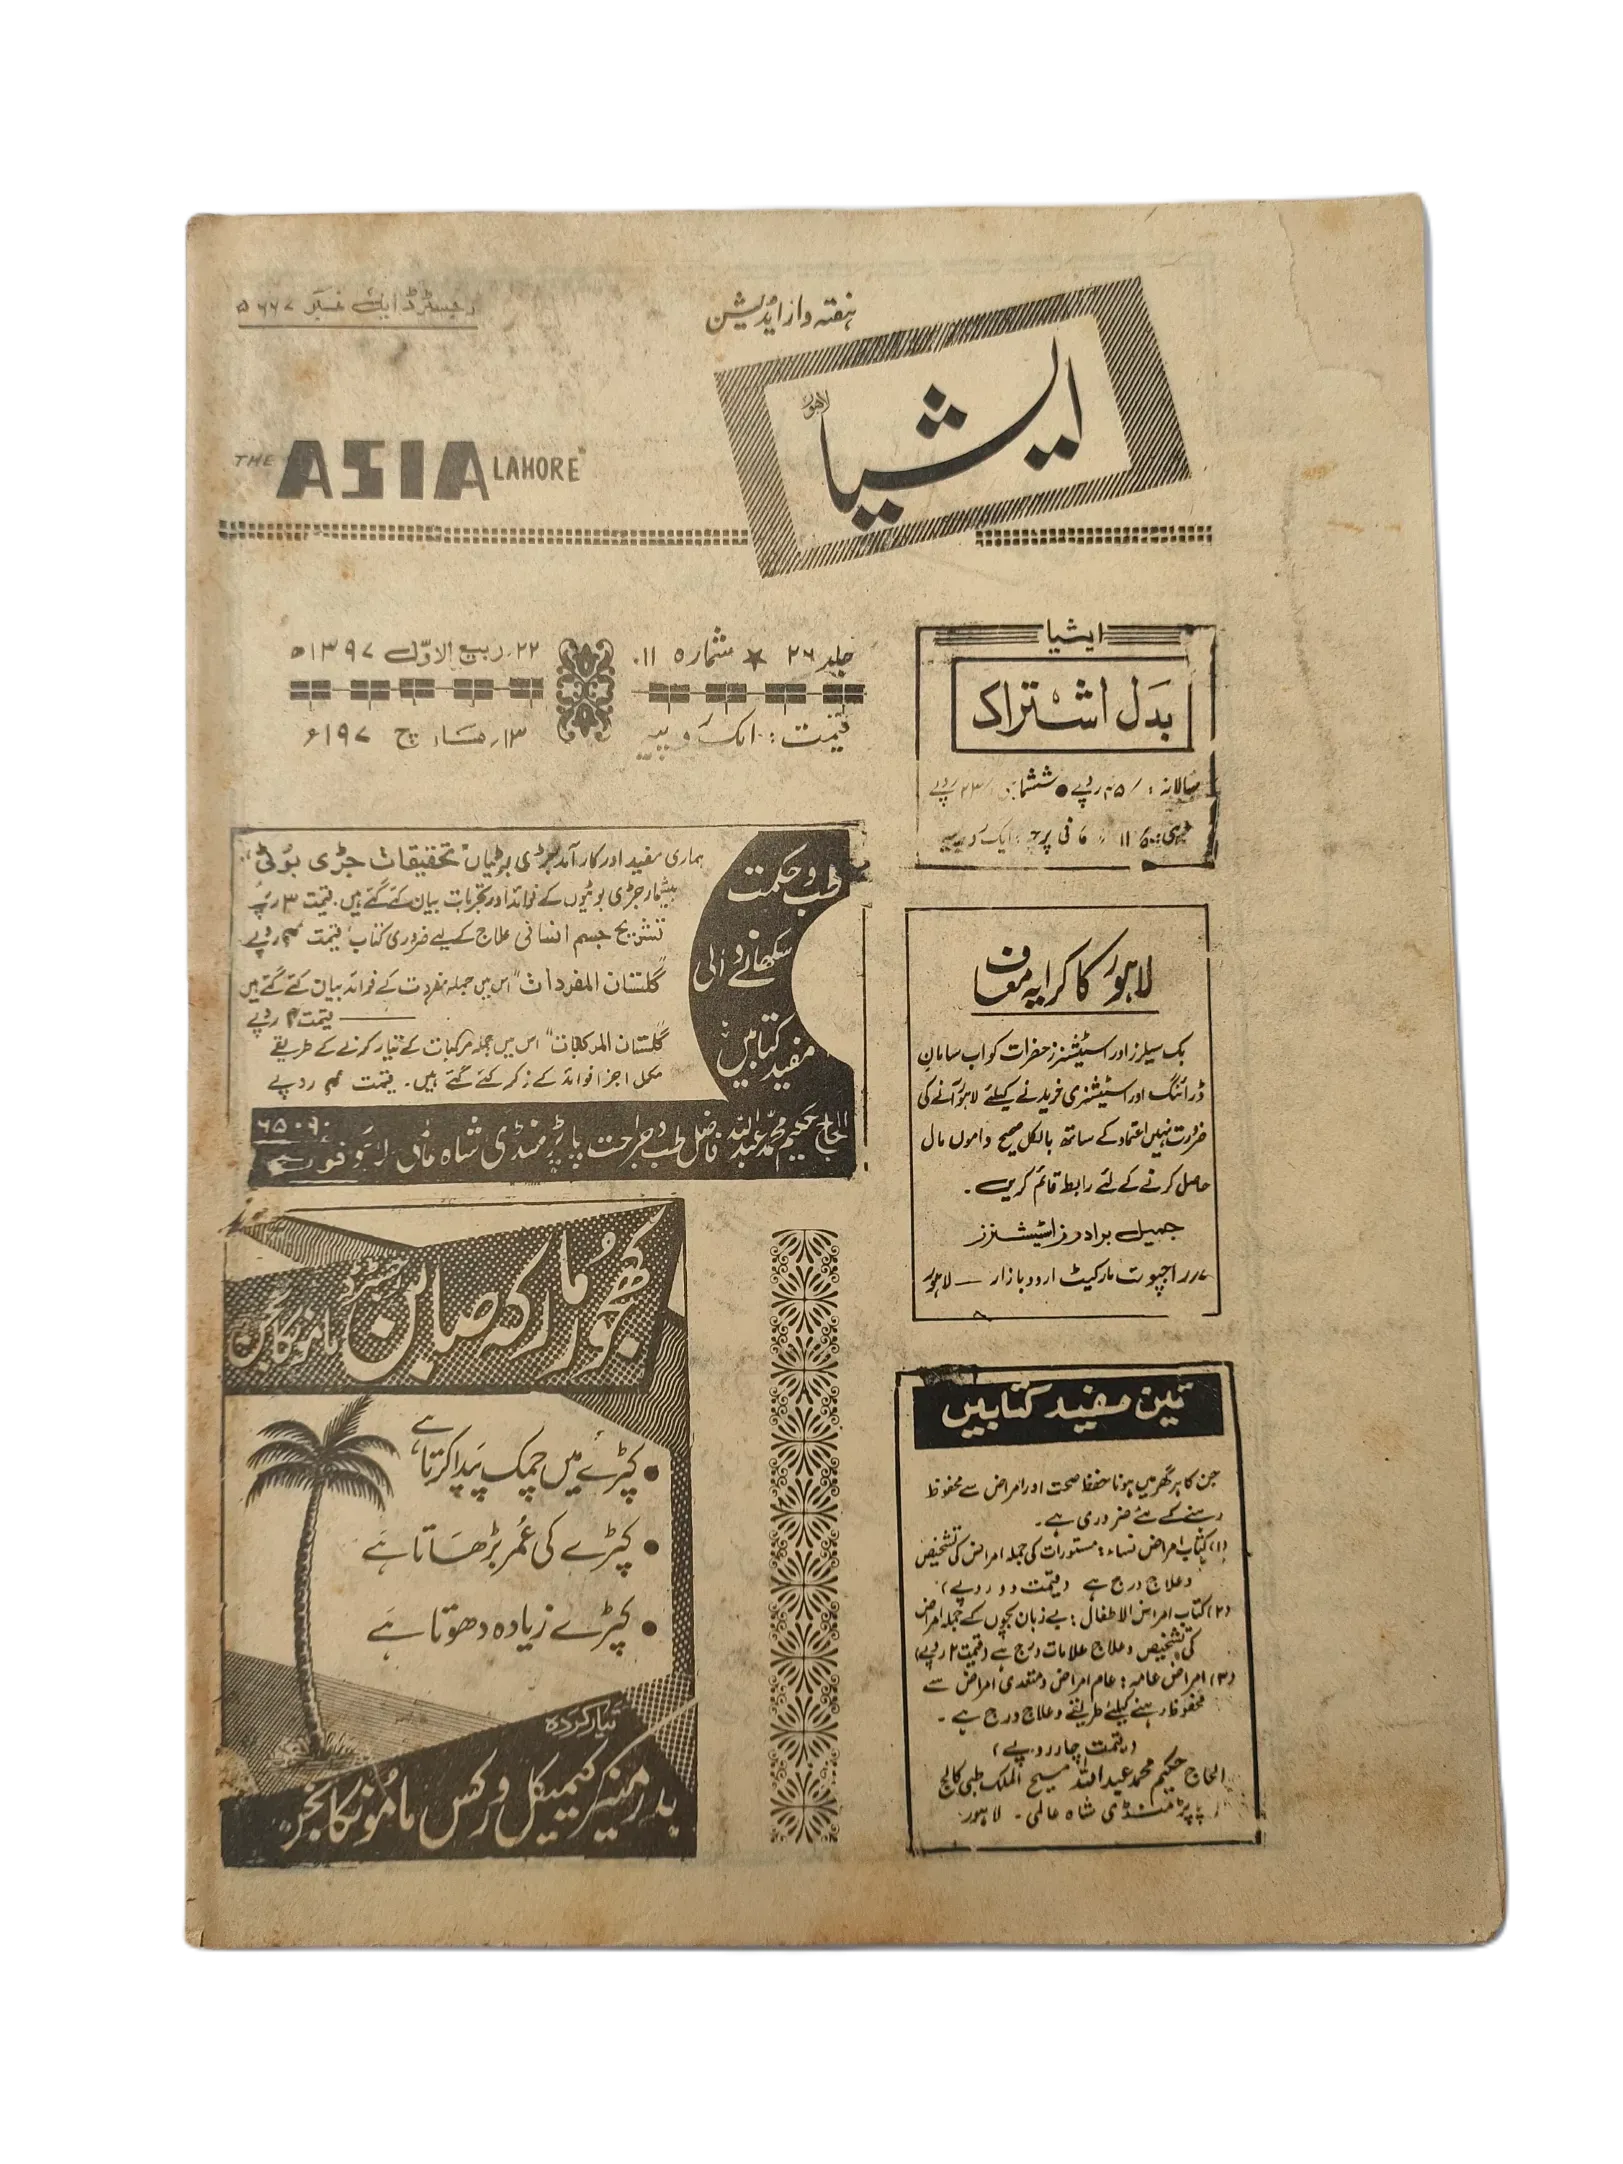 رجسٹرڈ ایل نمبر ۵۶۶۷
ہفتہ وار ایڈیشن
ایشیا
لاہور
THE ASIA LAHORE
جلد ۲۶ ★ شمارہ ۱۱
۲۲ ربیع الاوّل ۱۳۹۷ھ
قیمت: ایک روپیہ
۱۳ مارچ ۱۹۷۷ء
ایشیا
بدل اشتراک
سالانہ: /۴۵ روپے • ششماہی /۲۳ روپے
فی پرچہ: ایک روپیہ
طب و حکمت
سکھانے والی
مفید کتابیں
ہماری مفید اور کارآمد جڑی بوٹیاں "تحقیقات جڑی بوٹی"
بیشمار جڑی بوٹیوں کے فوائد اور تجربات بیان کئے گئے ہیں۔ قیمت ۳ روپے
تشریح جسم انسانی علاج کے لیے ضروری کتاب قیمت روپے
"گلستان المفردات" اس میں جملہ مفردت کے فوائد بیان کئے گئے ہیں
قیمت ۴ روپے
"گلستان المرکبات" اس میں جملہ مرکبات کے تیار کرنے کے طریقے
مکمل اجزا فوائد کے ذکر کئے گئے ہیں۔ قیمت روپے
الحاج حکیم محمد عبداللہ فاضل طب و جراحت پاپڑ منڈی شاہ عالمی لاہور فون
۶۵۰۹۰
لاہور کا کرایہ معاف
بک سیلرز اور اسٹیشنرز حضرات کو اب سامان
ڈرائنگ اور اسٹیشنری خریدنے کیلئے لاہور آنے کی
ضرورت نہیں اعتماد کے ساتھ بالکل صحیح داموں مال
حاصل کرنے کے لئے رابطہ قائم کریں۔
جمیل برادرز اسٹیشنرز
۷ راجپوت مارکیٹ اردو بازار — لاہور
کھجور مارکہ صابن
رجسٹرڈ
مامونکانجن
• کپڑے میں چمک پیدا کرتا ہے
• کپڑے کی عمر بڑھاتا ہے
• کپڑے زیادہ دھوتا ہے
تیار کردہ
بدر منیر کیمیکل ورکس مامونکانجن
تین مفید کتابیں
جن کا ہر گھر میں ہونا حفظ صحت اور امراض سے محفوظ
رہنے کے لئے ضروری ہے۔
(۱) کتاب امراض نساء: مستورات کی جملہ امراض کی تشخیص
و علاج درج ہے (قیمت دو روپے)
(۲) کتاب امراض الاطفال: بے زبان بچوں کے جملہ امراض
کی تشخیص و علاج علامات درج ہے (قیمت ۲ روپے)
(۳) امراض عامہ: عام امراض و متعدی امراض سے
محفوظ رہنے کیلئے طریقے و علاج درج ہے۔
(قیمت چار روپے)
الحاج حکیم محمد عبداللہ مسیح الملک طبی کالج
پاپڑ منڈی شاہ عالمی۔ لاہور